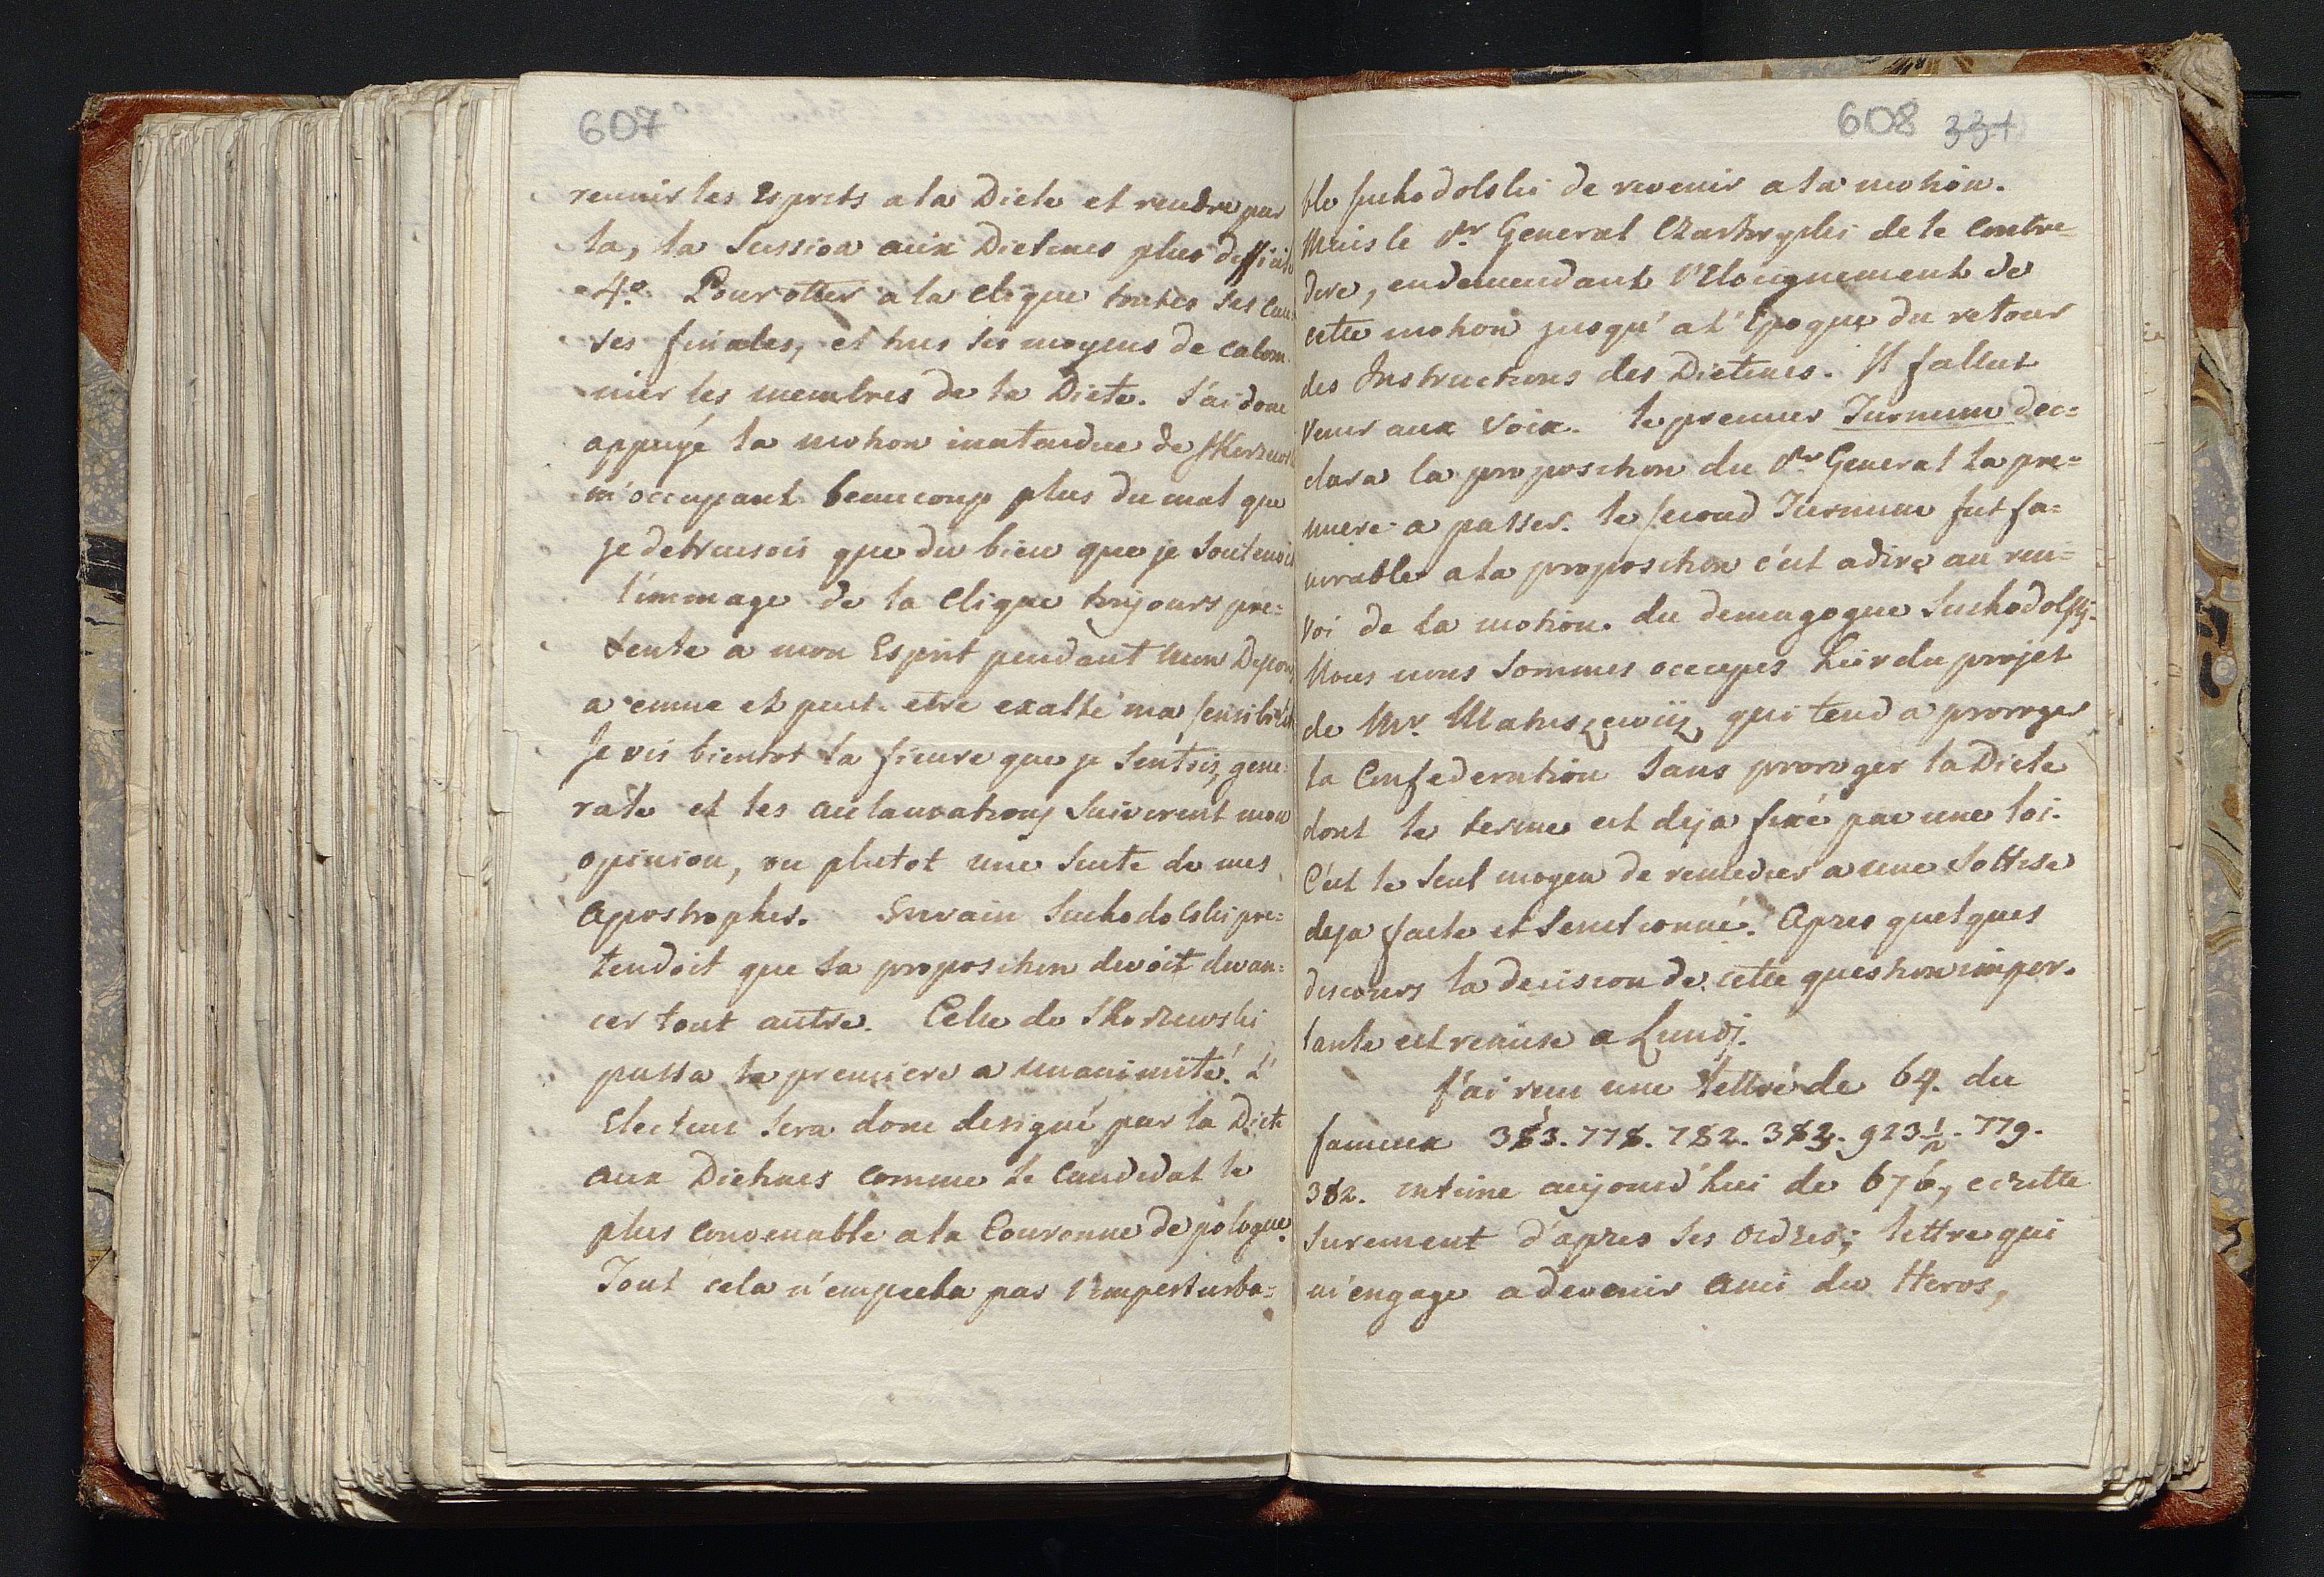 607
reunir les Esprits a la Diete et rendre par
la, la Scission aux Dietines plus difficile
4.º Pour otter a la clique toutes ses cau-
ses finales, et tous ses moyens de calom-
nier les membres de la Diete. J'ai donc
appuyé la motion inatendue de Skorzewski
m'occupant beaucoup plus du mal que
je detruisois que du bien que je soutenois
l'immage de la clique toujours pre=
sente a mon Esprit pendant mon Discours
a emue et peut-etre exalté ma sensibilité
Je vis bientot la fievre que je sentois, gene-
rale et les acclamations suivirent mon
opinion, ou plutot une suite de mes
apostrophes. Envain Suchodolski pre=
tendoit que sa proposition devoit devan=
cer tout autre. Celle de Skorzewski
passa la premiere a unanimité. L'
Electeur sera donc designé par la Diete
aux Dietines comme le candidat le
plus convenable a la Couronne de pologne.
Tout cela n'empecha pas l'imperturba=
608 331
ble Suchodolski de revenir a sa motion.
Mais le Pr General Czartoryski de le contre=
dire, en demandant l'Eloignement de
cette motion jusqu'a l'Epoque du retour
des Instructions des Dietines. Il fallut
venir aux voix. le premier Turnum dec=
clara la proposition du Pr General la pre=
miere a passer. le second Turnum fut fa=
vorable a la proposition c'est a dire au ren=
voi de la motion. du demagogue Suchodolski.
Nous nous sommes occupes hier du projet
de Mr. Matuszewicz, qui tend a proroger
la Confederation sans proroger la Diete
dont le terme est deja fixé par une loi.
C'est le seul moyen de remedier a une sottise
deja faite et sanctionné. Apres quelques
discours la decision de cette question impor-
tante est remise a Lundj.
J'ai reçu une lettre de 64. du
fameux 383. 778. 782. 382. 923½. 779.
382. intime aujourd'hui de 676, ecritte
surement d'apres ses ordres; lettre qui
m'engage a devenir ami du Heros,